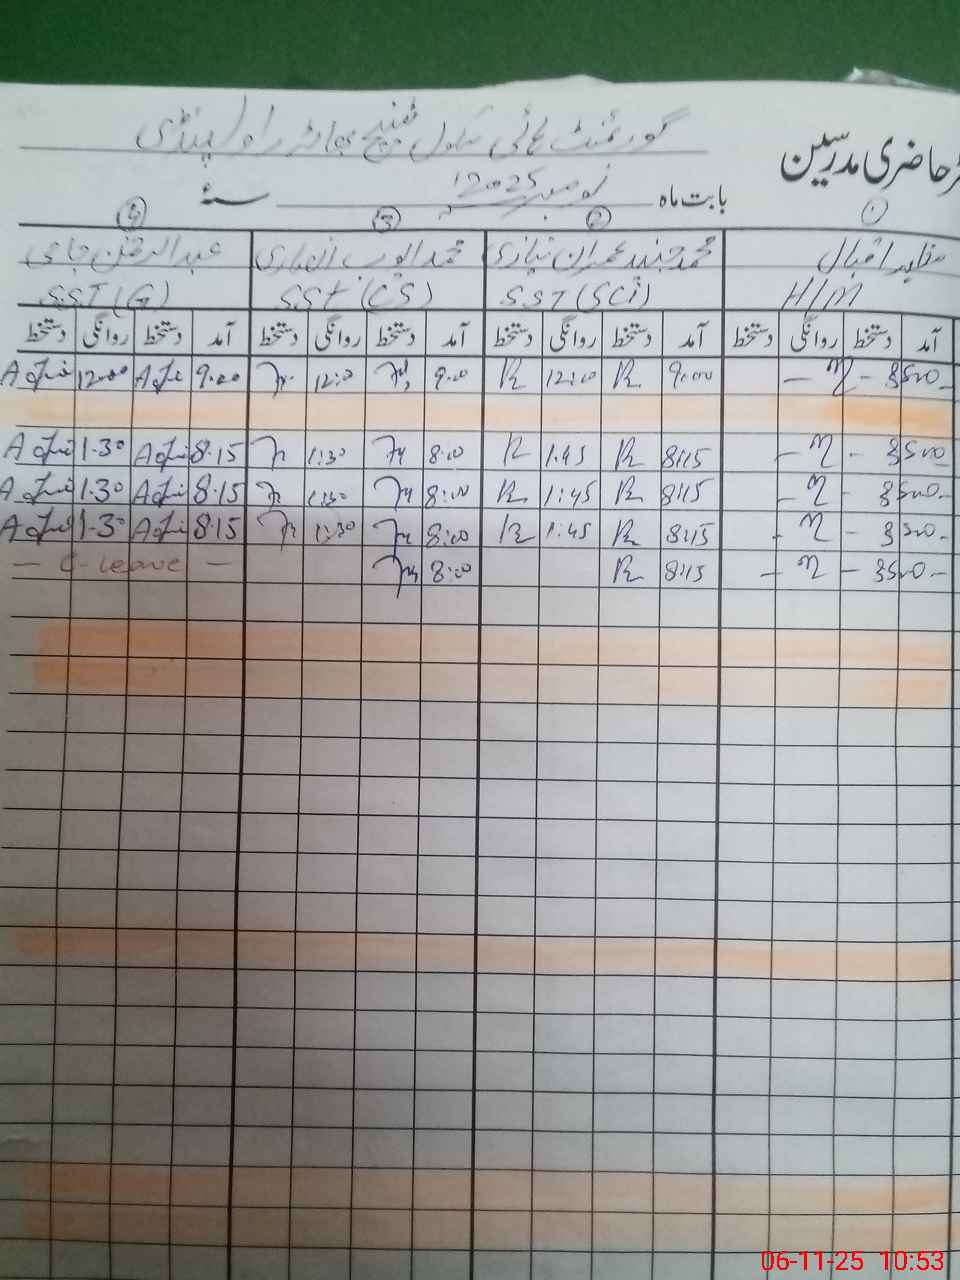 گورنمنٹ ہائی سکول ٹینچ بھاٹہ راولپنڈی
حاضری مدرسین
بابت ماہ نومبر 2025 سنۂ
1 2 3 4
مظہر اقبال محمد جنید عمران نیازی محمد ایوب انصاری عبدالرحمٰن جامی
H/M S.S.T (SCi) S.S.t (CS) S.S.T (G)
آمد دستخط روانگی دستخط آمد دستخط روانگی دستخط آمد دستخط روانگی دستخط آمد دستخط روانگی دستخط
9:00 12:00 9:00 12:00 9:00 12:00
8:15 1:45 8:00 1:30 8:15 1.30
8:15 1:45 8:00 1:30 8:15 1.30
8:15 1:45 8:00 1:30 8:15 1.30
8:15 8:00 — C-leave —
06-11-25 10:53